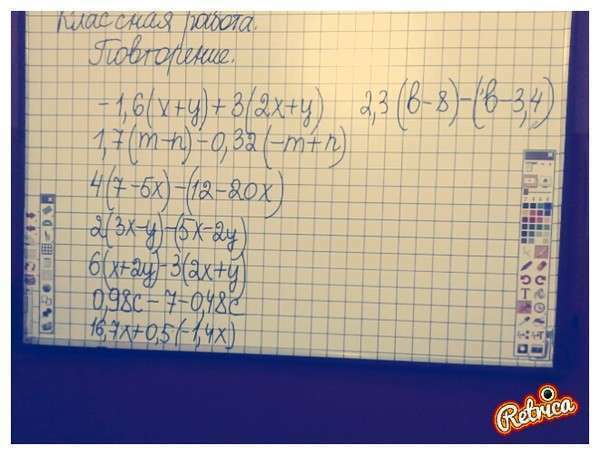 Классная работа.
Повторение.
-1,6(x+y)+3(2x+y)
2,3(в-8)-(в-3,4)
1,7(m-n)-0,32(-m+n)
4(7-5x)-(12-20x)
2(3x-y)-(5x-2y)
6(x+2y)-3(2x+y)
0,98c-7-0,48c
16,7x+0,5(-1,4x)
Retrica